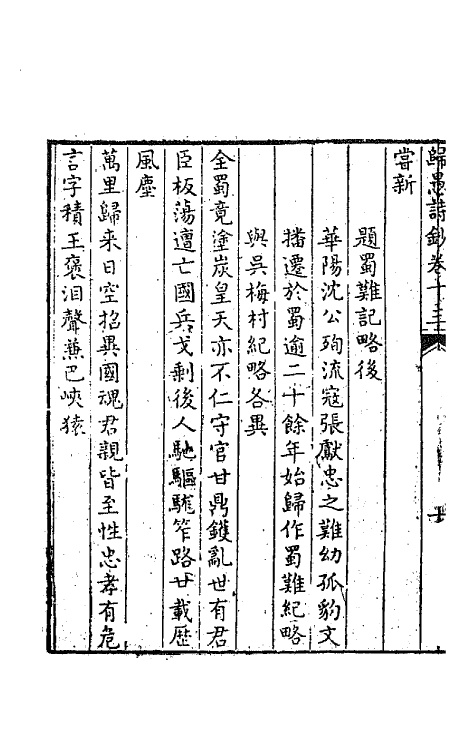 歸愚詩鈔卷十三
嘗新
題蜀難記略後
華陽沈公殉流寇張獻忠之難幼孤豹文
播遷於蜀逾二十餘年始歸作蜀難紀略
與吳梅村紀略各異
全蜀竟塗炭皇天亦不仁守官甘鼎鑊亂世有君
臣板蕩遭亡國兵戈剩後人馳驅駹笮路廿載歷
風塵
萬里歸来日空招異國魂君親皆至性忠孝有危
言字積王褒泪聲兼巴峽猿